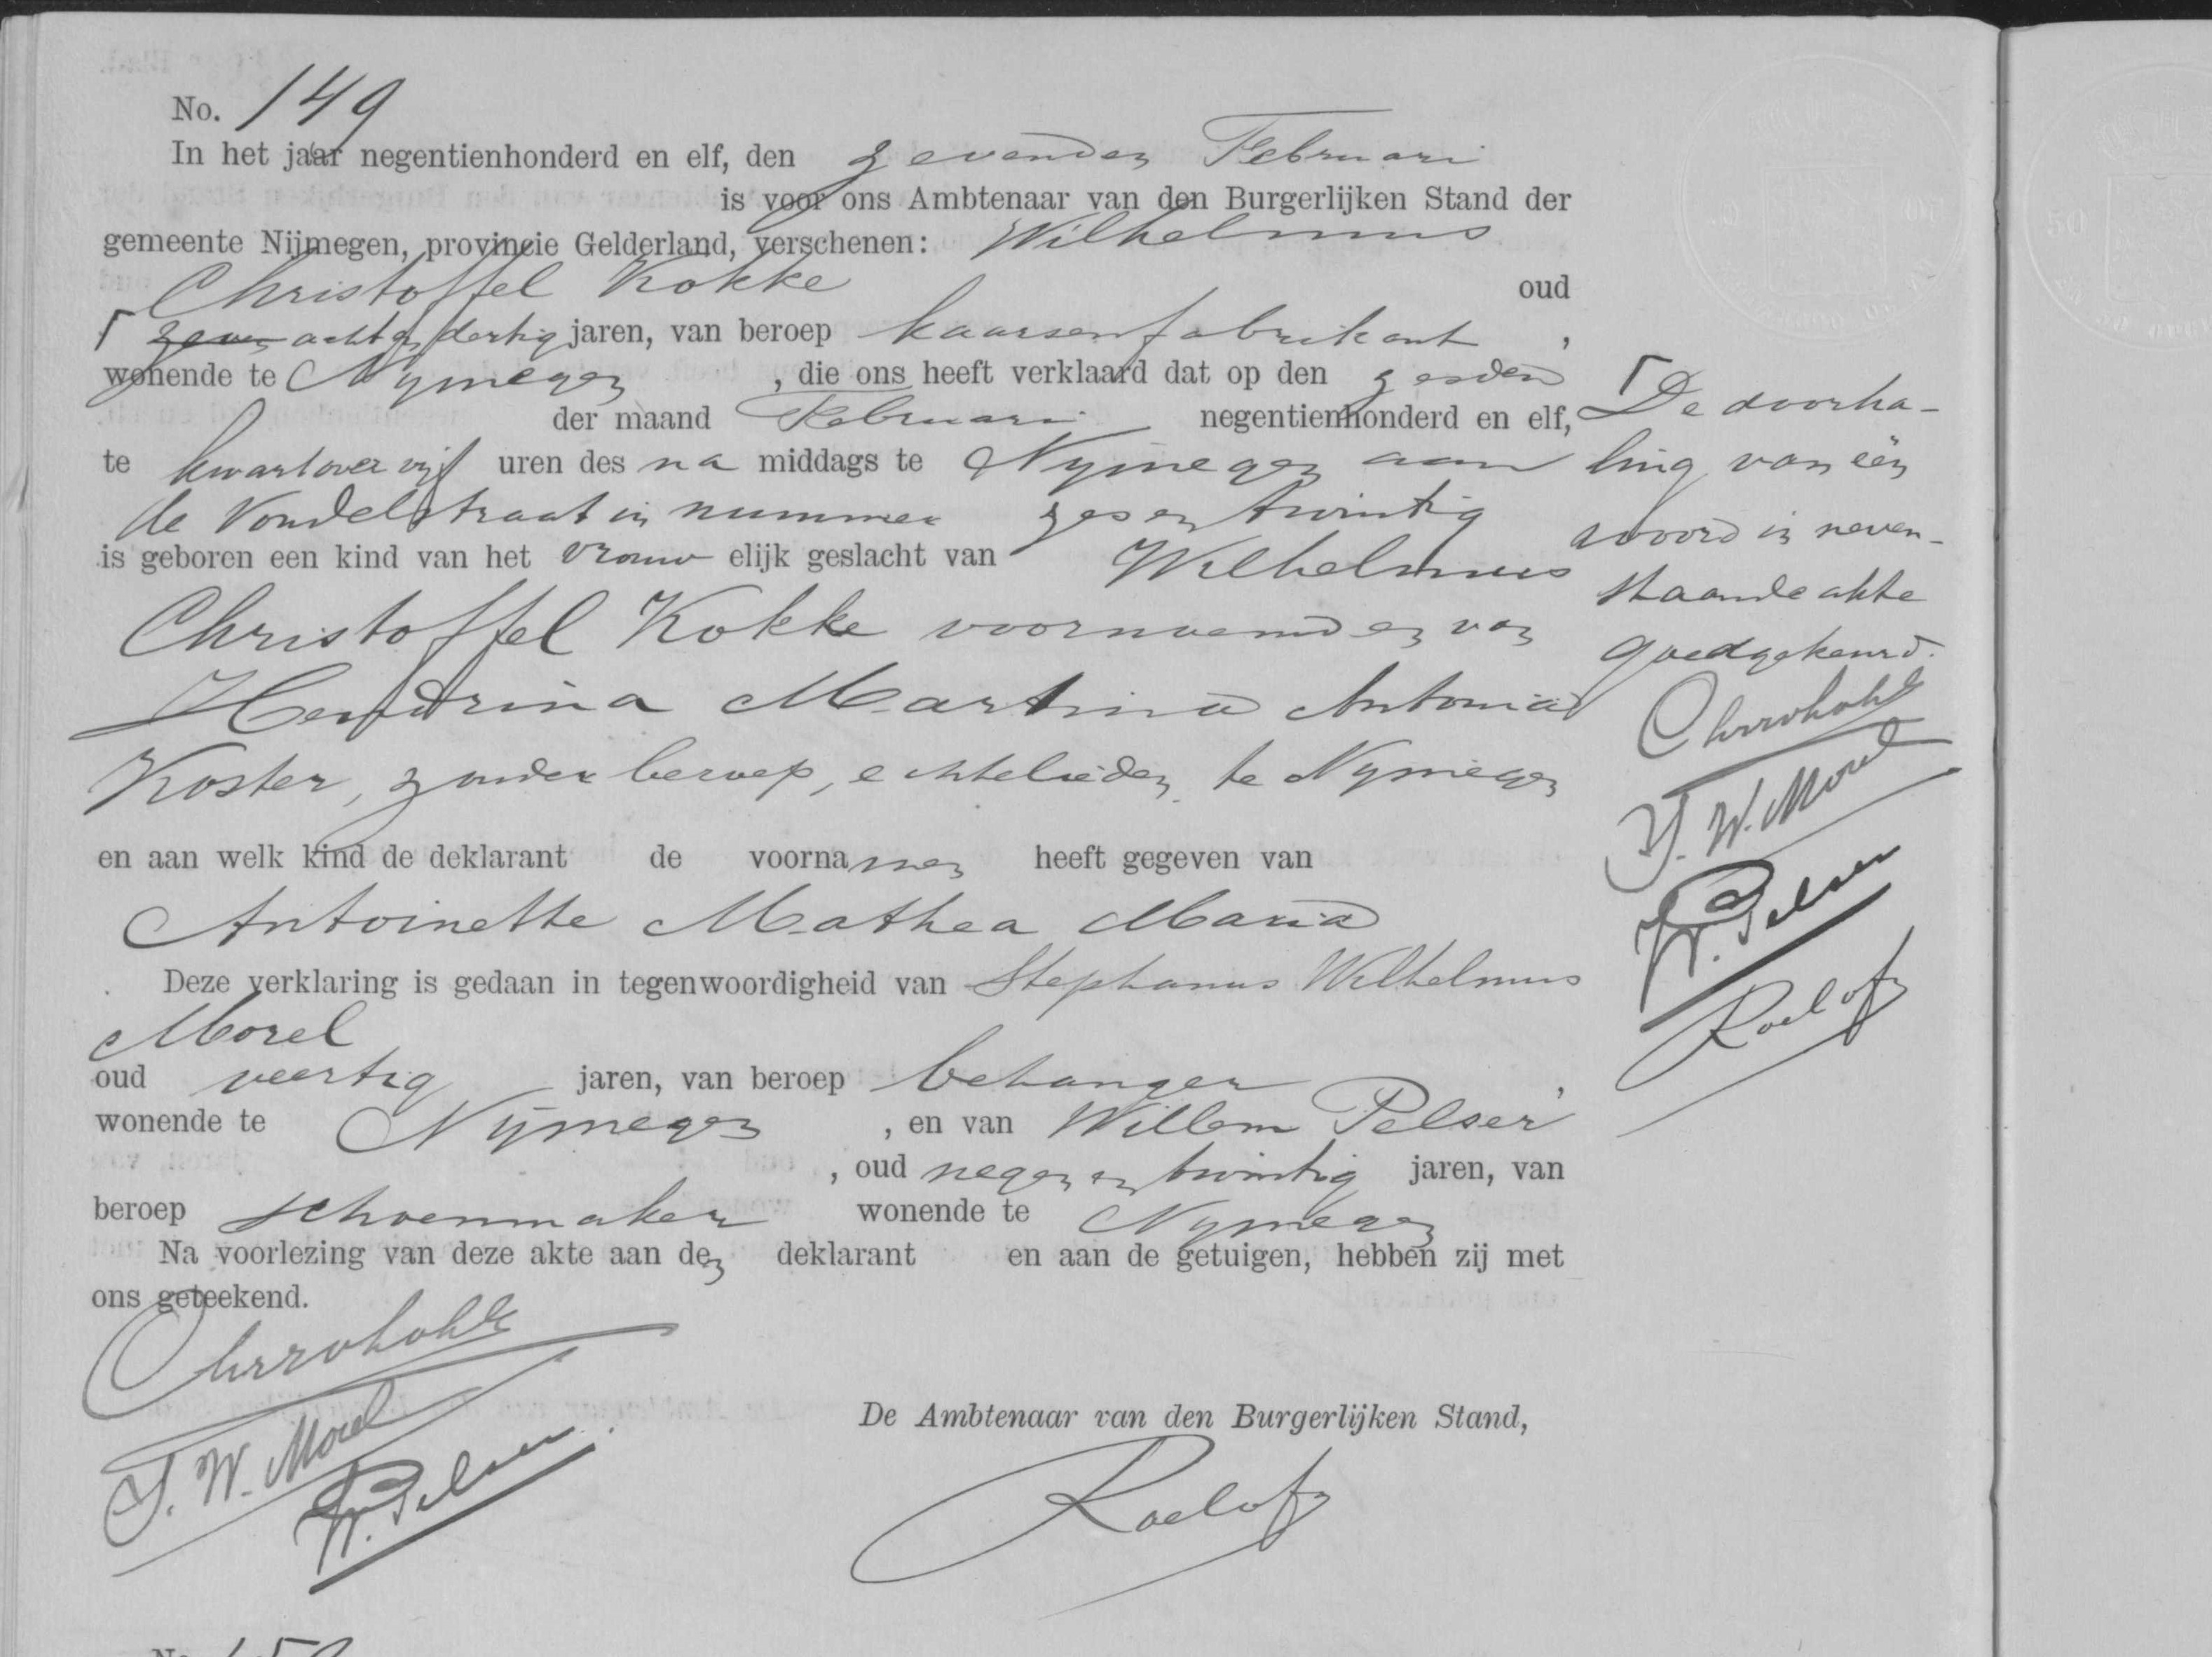 No. 149
In het jaar negentienhonderd en elf, den zevenden Februari
is voor ons Ambtenaar van den Burgerlijken Stand der
gemeente Nijmegen, provincie Gelderland, verschenen: Wilhelmus
Christoffel Kokke oud
zeven acht en dertig jaren, van beroep kaarsenfabrikant,
wonende te Nymegen, die ons heeft verklaard dat op den zesden
der maand Februari negentienhonderd en elf,
te kwart over vijf uren des na middags te Nymegen aan
de Vondelstraat in nummer zes en twintig
is geboren een kind van het vrouw elijk geslacht van Wilhelmus
Christoffel Kokke voornoemd en van
Hendrina Martina Antonia
Koster, zonder beroep, echtelieden te Nymegen
en aan welk kind de deklarant de voornamen heeft gegeven van
Antoinette Mathea Maria
Deze verklaring is gedaan in tegenwoordigheid van Stephanus Wilhelmus
Morel
oud veertig jaren, van beroep behanger,
wonende te Nijmegen, en van Willem Pelser
, oud negen en twintig jaren, van
beroep schoenmaker wonende te Nymegen
Na voorlezing van deze akte aan den deklarant en aan de getuigen, hebben zij met
ons geteekend.
S. W. Morel
W. Pelser
De Ambtenaar van den Burgerlijken Stand,
Roelofs
De doorha-
ling van één
woord in neven-
staande akte
goedgekeurd.
S. W. Morel
W. Pelser
Roelofs